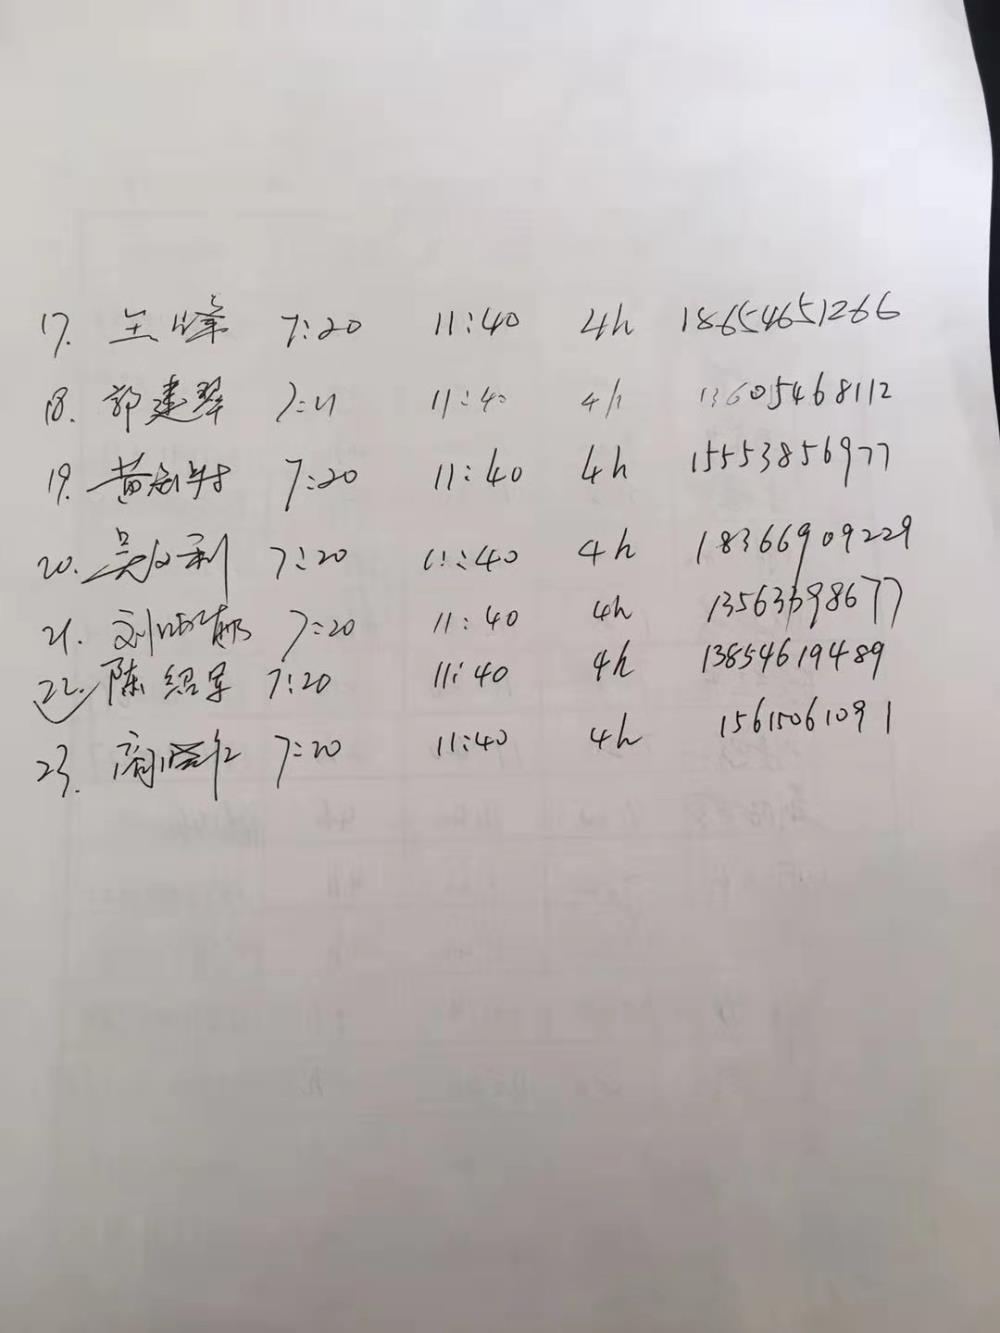 17. 王峰 7:20 11:40 4h 18654651266
18. 郭建翠 7:21 11:40 4h 13605468112
19. 黄 7:20 11:40 4h 15553856977
20. 吴 利 7:20 11:40 4h 18366909229
21. 刘 7:20 11:40 4h 13563398677
22. 陈绍军 7:20 11:40 4h 13854619489
23. 7:20 11:40 4h 15615061091